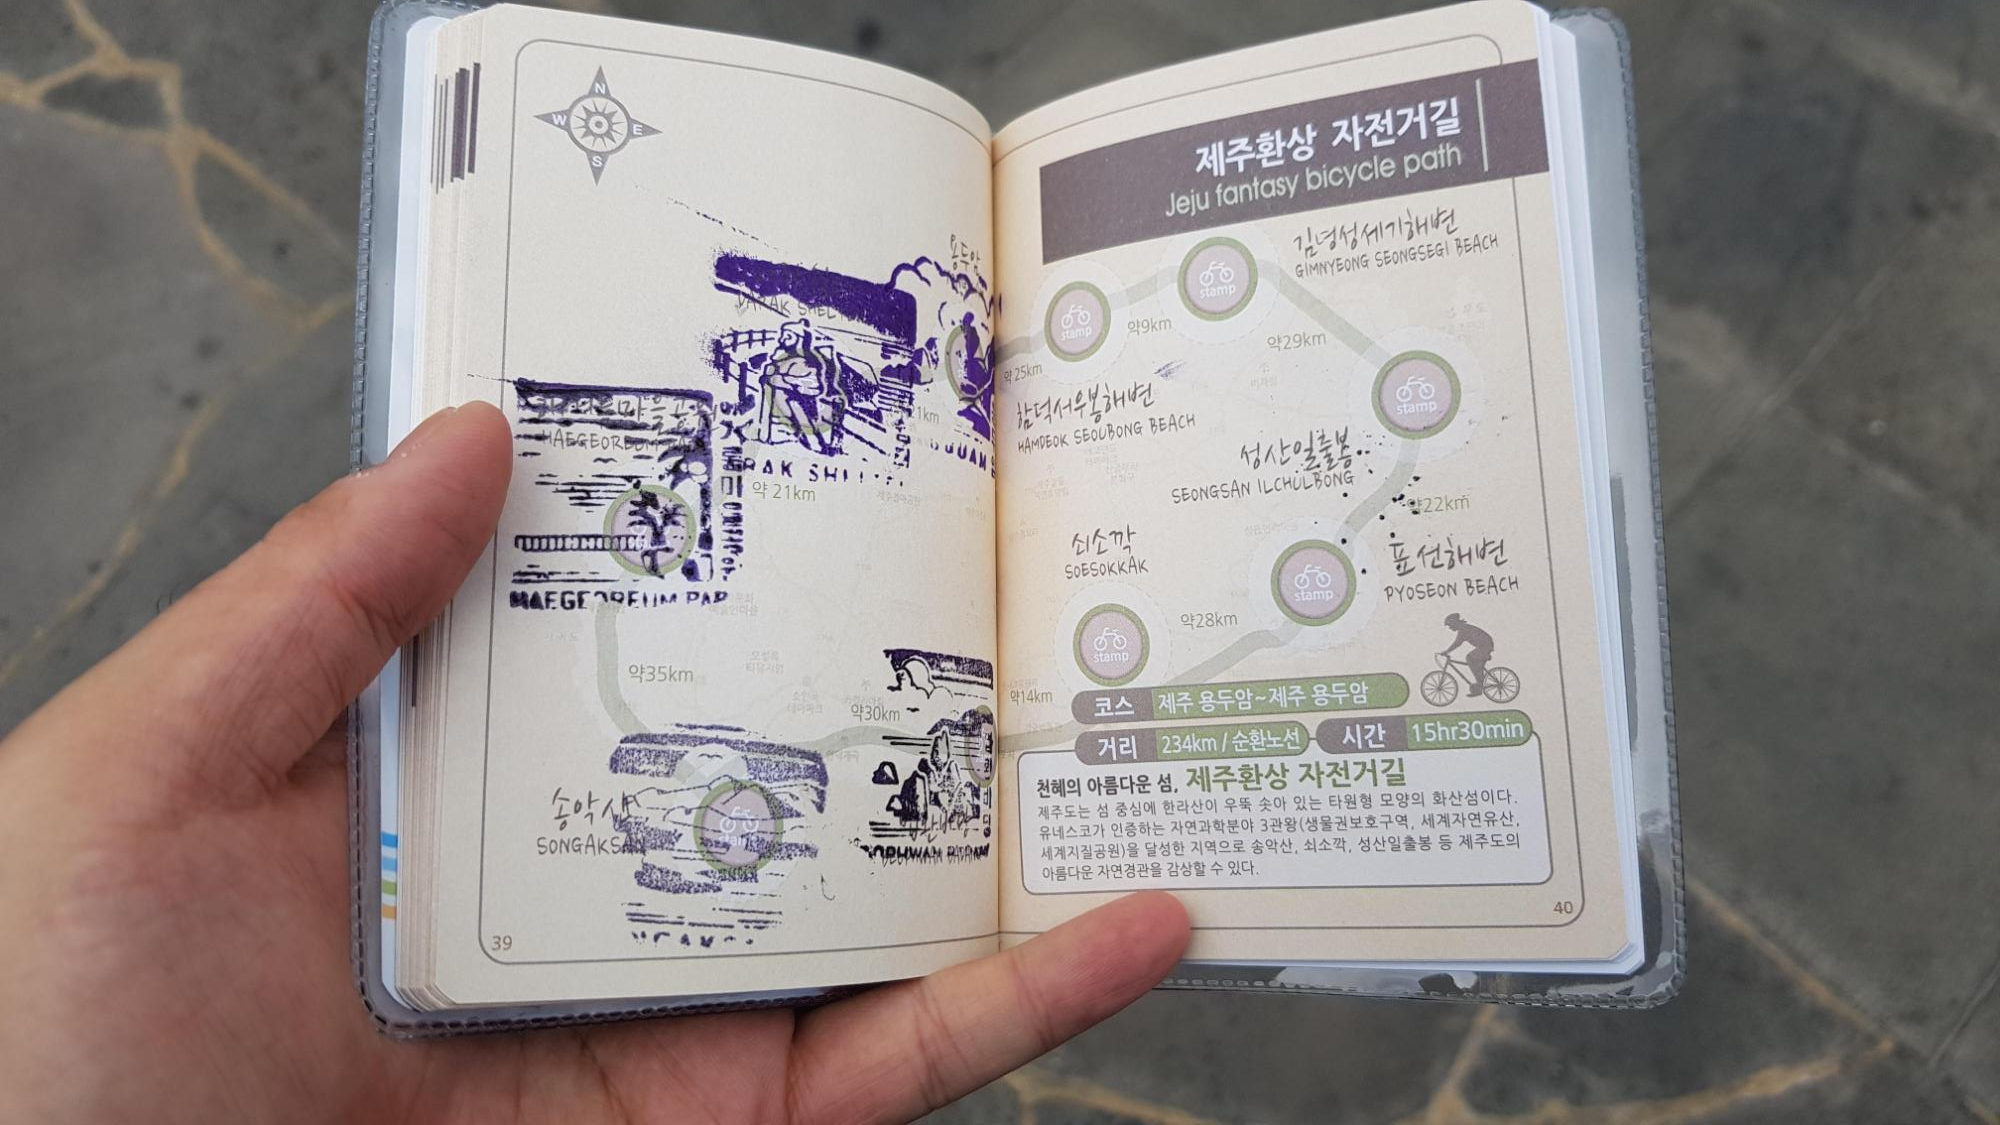 N
W E
S
용두암
DARAK SHELTER
21km
HAEGEOREUM PAR
약 21km
약35km
약30km
송악산
SONGAKSAN
39
제주환상 자전거길
Jeju fantasy bicycle path
김녕성세기해변
GIMNYEONG SEONGSEGI BEACH
stamp
stamp
약9km
약29km
약25km
stamp
함덕서우봉해변
HAMDEOK SEOUBONG BEACH
성산일출봉
SEONGSAN ILCHULBONG
약22km
쇠소깍
SOESOKKAK
표선해변
PYOSEON BEACH
stamp
약28km
stamp
약14km
코스 제주 용두암~제주 용두암
거리 234km / 순환노선 시간 15hr30min
천혜의 아름다운 섬, 제주환상 자전거길
제주도는 섬 중심에 한라산이 우뚝 솟아 있는 타원형 모양의 화산섬이다.
유네스코가 인증하는 자연과학분야 3관왕(생물권보호구역, 세계자연유산,
세계지질공원)을 달성한 지역으로 송악산, 쇠소깍, 성산일출봉 등 제주도의
아름다운 자연경관을 감상할 수 있다.
40